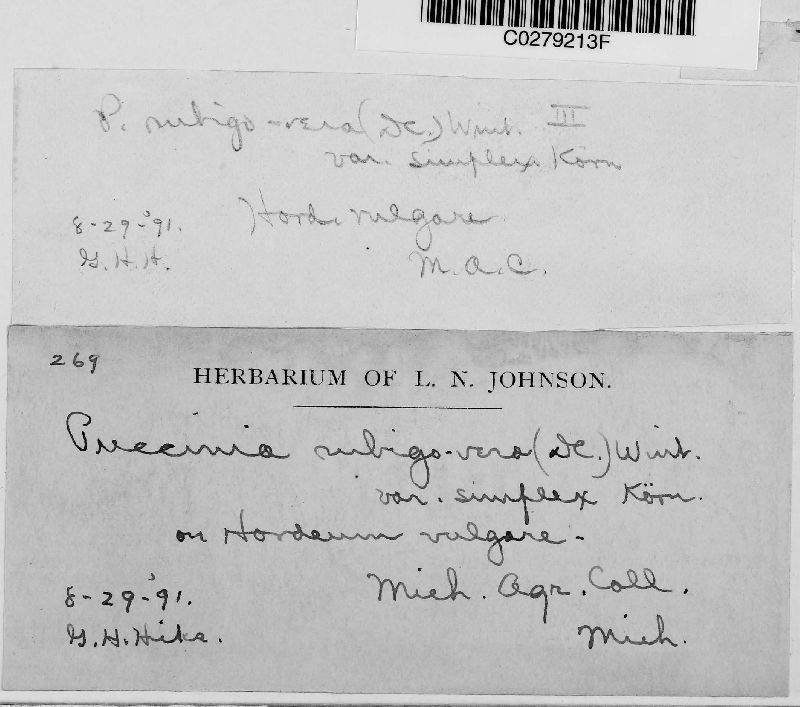 C0279213F
P. rubigo-vera (DC.) Wint. III
var. simplex Körn
8-29-'91. Hord. vulgare
G.H.H. M.A.C.
269
HERBARIUM OF L. N. JOHNSON.
Puccinia rubigo-vera (DC.) Wint.
var. simplex Körn.
on Hordeum vulgare-
8-29-'91. Mich. Agr. Coll.
G.H.Hicks. Mich.